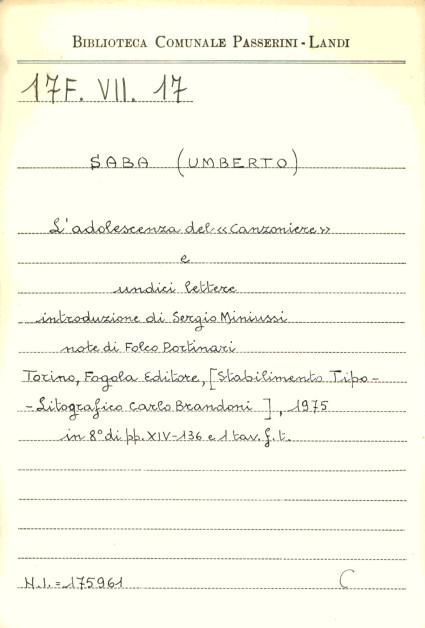 BIBLIOTECA COMUNALE PASSERINI - LANDI
17F. VII. 17
SABA (UMBERTO)
L'adolescenza del «Canzoniere»
e
undici lettere
introduzione di Sergio Miniussi
note di Folco Portinari
Torino, Fogola Editore, [Stabilimento Tipo-
-Litografico Carlo Brandoni ], 1975
in 8° di pp. XIV-136 e 1 tav. f. t.
N.I. = 175961 C